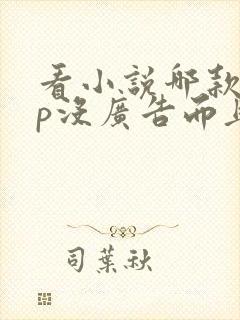 看小說哪款
p沒廣告而且
司葉秋